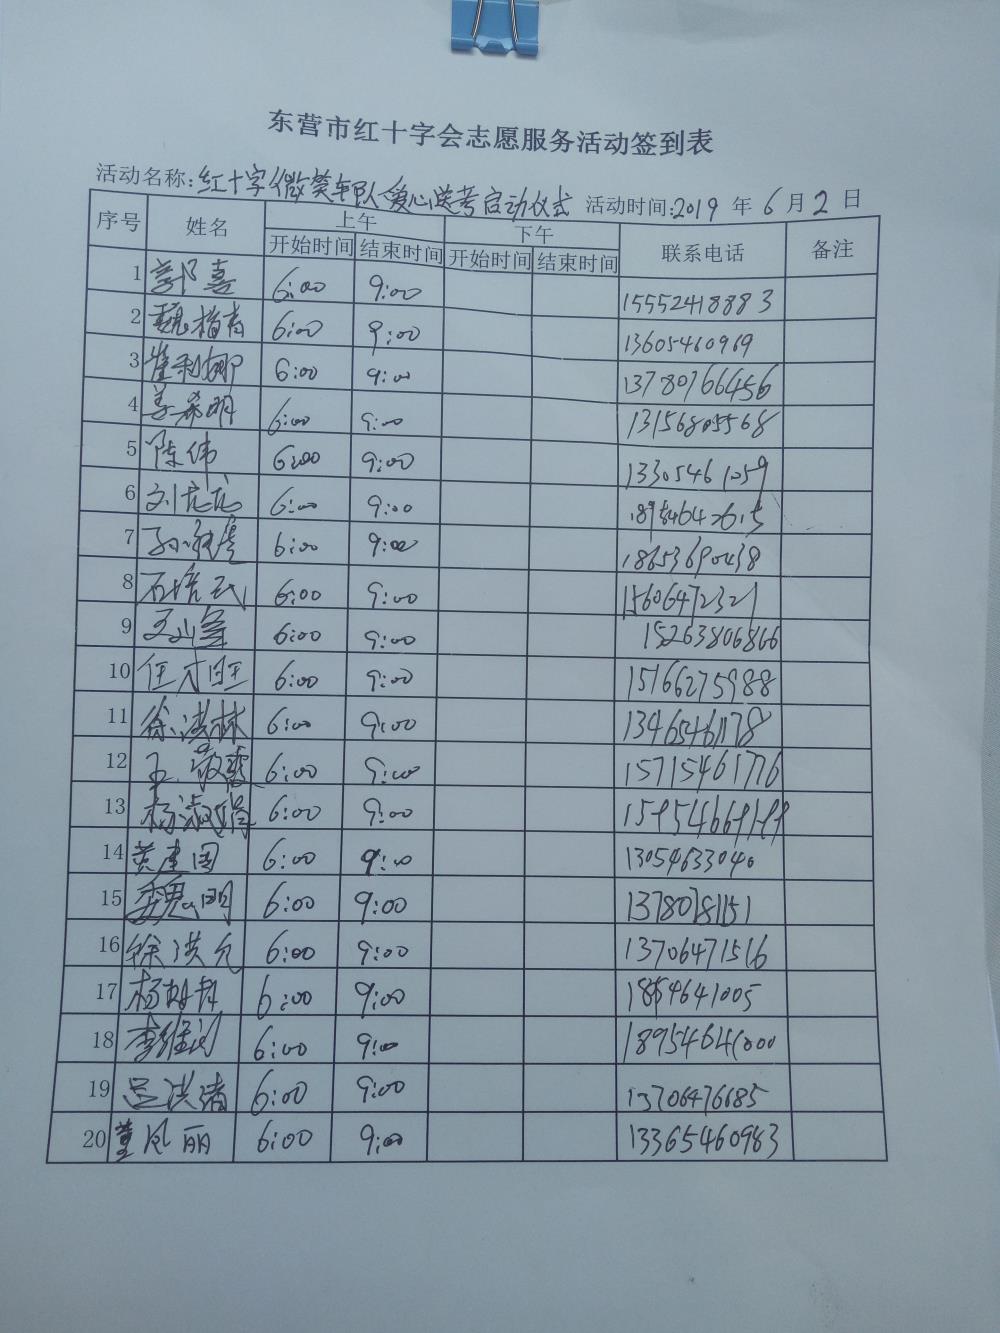 东营市红十字会志愿服务活动签到表
活动名称:红十字微笑车队爱心送考启动仪式 活动时间:2019 年 6 月 2 日
序号 姓名 上午 下午 联系电话 备注
开始时间 结束时间 开始时间 结束时间
1 郭喜 6:00 9:00 15552418883
2 6:00 9:00 13605460969
3 崔利娜 6:00 9:00 13780766456
4 姜希明 6:00 9:00 13156805568
5 陈伟 6:00 9:00 13305461059
6 刘龙龙 6:00 9:00
7 6:00 9:00 18653690438
8 石培武 6:00 9:00 15606472321
9 6:00 9:00 15263806866
10 任才旺 6:00 9:00 15166275988
11 徐洪林 6:00 9:00 13465461178
12 王 6:00 9:00 15715461776
13 杨淑娟 6:00 9:00
14 黄建国 6:00 9:00 13054633040
15 魏明 6:00 9:00 13780781151
16 徐洪允 6:00 9:00 13706471516
17 杨 6:00 9:00
18 李维 6:00 9:00 18954641000
19 吕洪绪 6:00 9:00 13706476685
20 董凤丽 6:00 9:00 13365460983